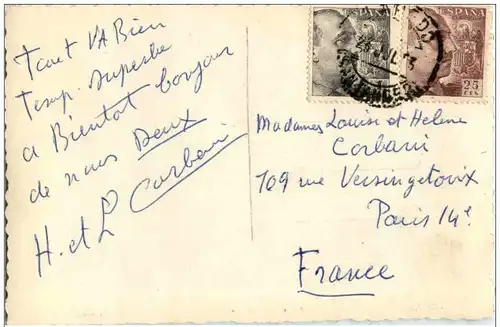 Tout VA Bien
Temps superbe
a Bientot bonjour
de nous Deux
H. et L Corbani
ESPAÑA
ESPAÑA
25
PTS
Madames Louise et Helene
Corbani
109 rue Versingetorix
Paris 14e
France